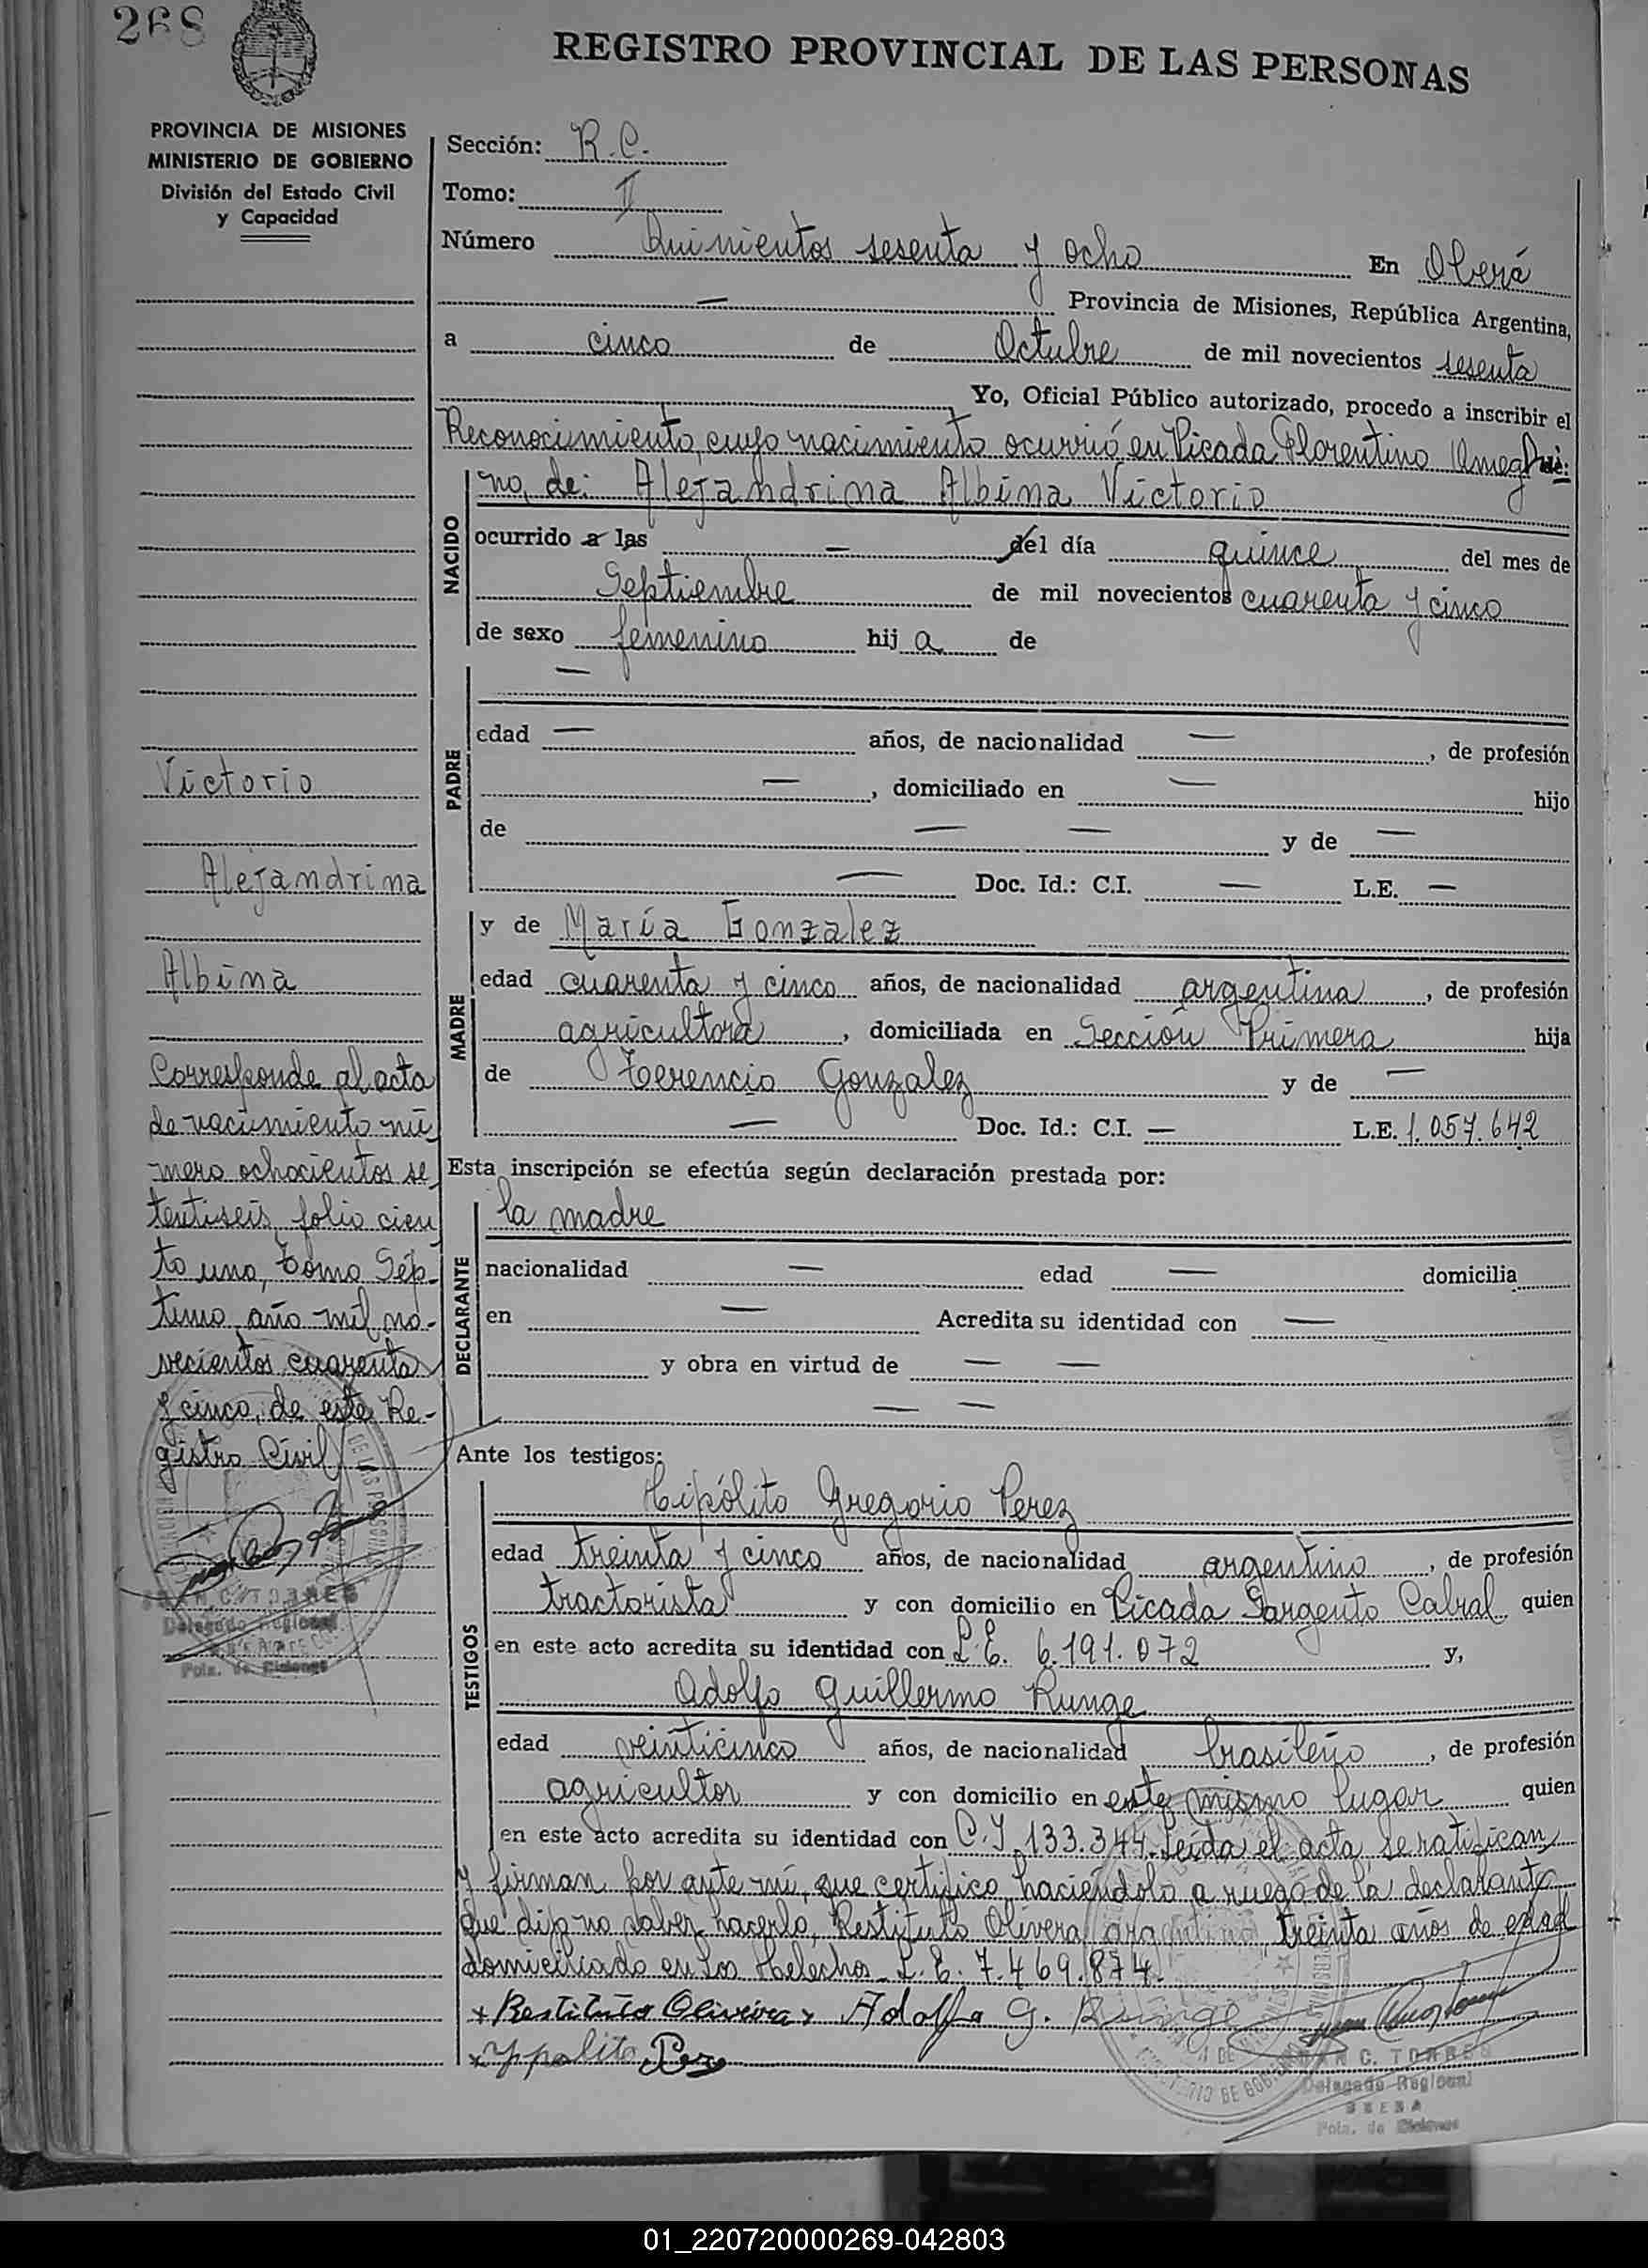 268
REGISTRO PROVINCIAL DE LAS PERSONAS
PROVINCIA DE MISIONES
MINISTERIO DE GOBIERNO
División del Estado Civil
y Capacidad
Sección: R.C.
Tomo: II
Número Quinientos sesenta y ocho En Oberá
— Provincia de Misiones, República Argentina,
a cinco de Octubre de mil novecientos sesenta
Yo, Oficial Público autorizado, procedo a inscribir el
Reconocimiento, cuyo nacimiento ocurrió en Picada Florentino Ameghi=
NACIDO
no, de: Alejandrina Albina Victorio
ocurrido a las — del día quince del mes de
Septiembre de mil novecientos cuarenta y cinco
de sexo femenino hija de
PADRE
—
edad — años, de nacionalidad —, de profesión
—, domiciliado en — hijo
de — — y de —
— Doc. Id.: C.I. — L.E. —
MADRE
y de María Gonzalez
edad cuarenta y cinco años, de nacionalidad argentina, de profesión
agricultora, domiciliada en Sección Primera hija
de Terencio Gonzalez y de —
— Doc. Id.: C.I. — L.E. 1.057.642
Esta inscripción se efectúa según declaración prestada por:
DECLARANTE
la madre
nacionalidad — edad — domicilia
en — Acredita su identidad con —
y obra en virtud de — —
— —
Ante los testigos:
TESTIGOS
Hipólito Gregorio Perez
edad treinta y cinco años, de nacionalidad argentino, de profesión
tractorista y con domicilio en Picada Sargento Cabral quien
en este acto acredita su identidad con L.E. 6.191.072 y,
Adolfo Guillermo Runge
edad veinticinco años, de nacionalidad brasileño, de profesión
agricultor y con domicilio en este mismo lugar quien
en este acto acredita su identidad con C.I. 133.344. Leída el acta, se ratifican
y firman por ante mí, que certifico, haciéndolo a ruego de la declarante
que dijo no saber hacerlo, Restituto Olivera, argentino, treinta años de edad
domiciliado en Los Helechos. L.E. 7.469.874.
+ Restituto Oliveira Adolfo G. Runge
+ Yppolito Perez
JUAN C. TORRES
Delegado Regional
OBERA
Pcia. de Misiones
Victorio
Alejandrina
Albina
Corresponde al acta
de nacimiento nú
mero ochocientos se
tentiseis, folio cien
to uno, tomo Sép-
timo, año mil no-
vecientos cuarenta
y cinco, de este Re-
gistro Civil
JUAN C. TORRES
Delegado Regional
Pcia. de Misiones
01_220720000269-042803